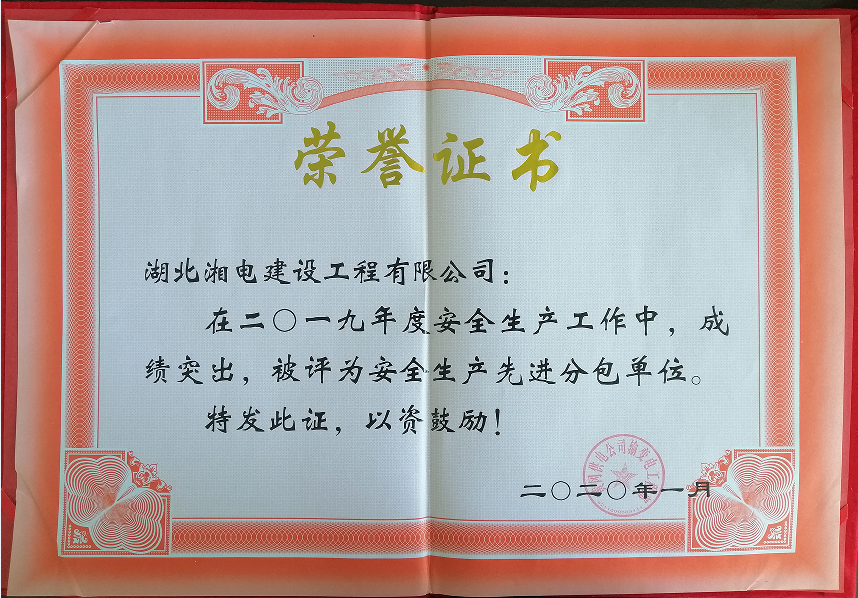 荣誉证书
湖北湘电建设工程有限公司：
在二〇一九年度安全生产工作中，成
绩突出，被评为安全生产先进分包单位。
特发此证，以资鼓励！
供电公司输变电工
二〇二〇年一月